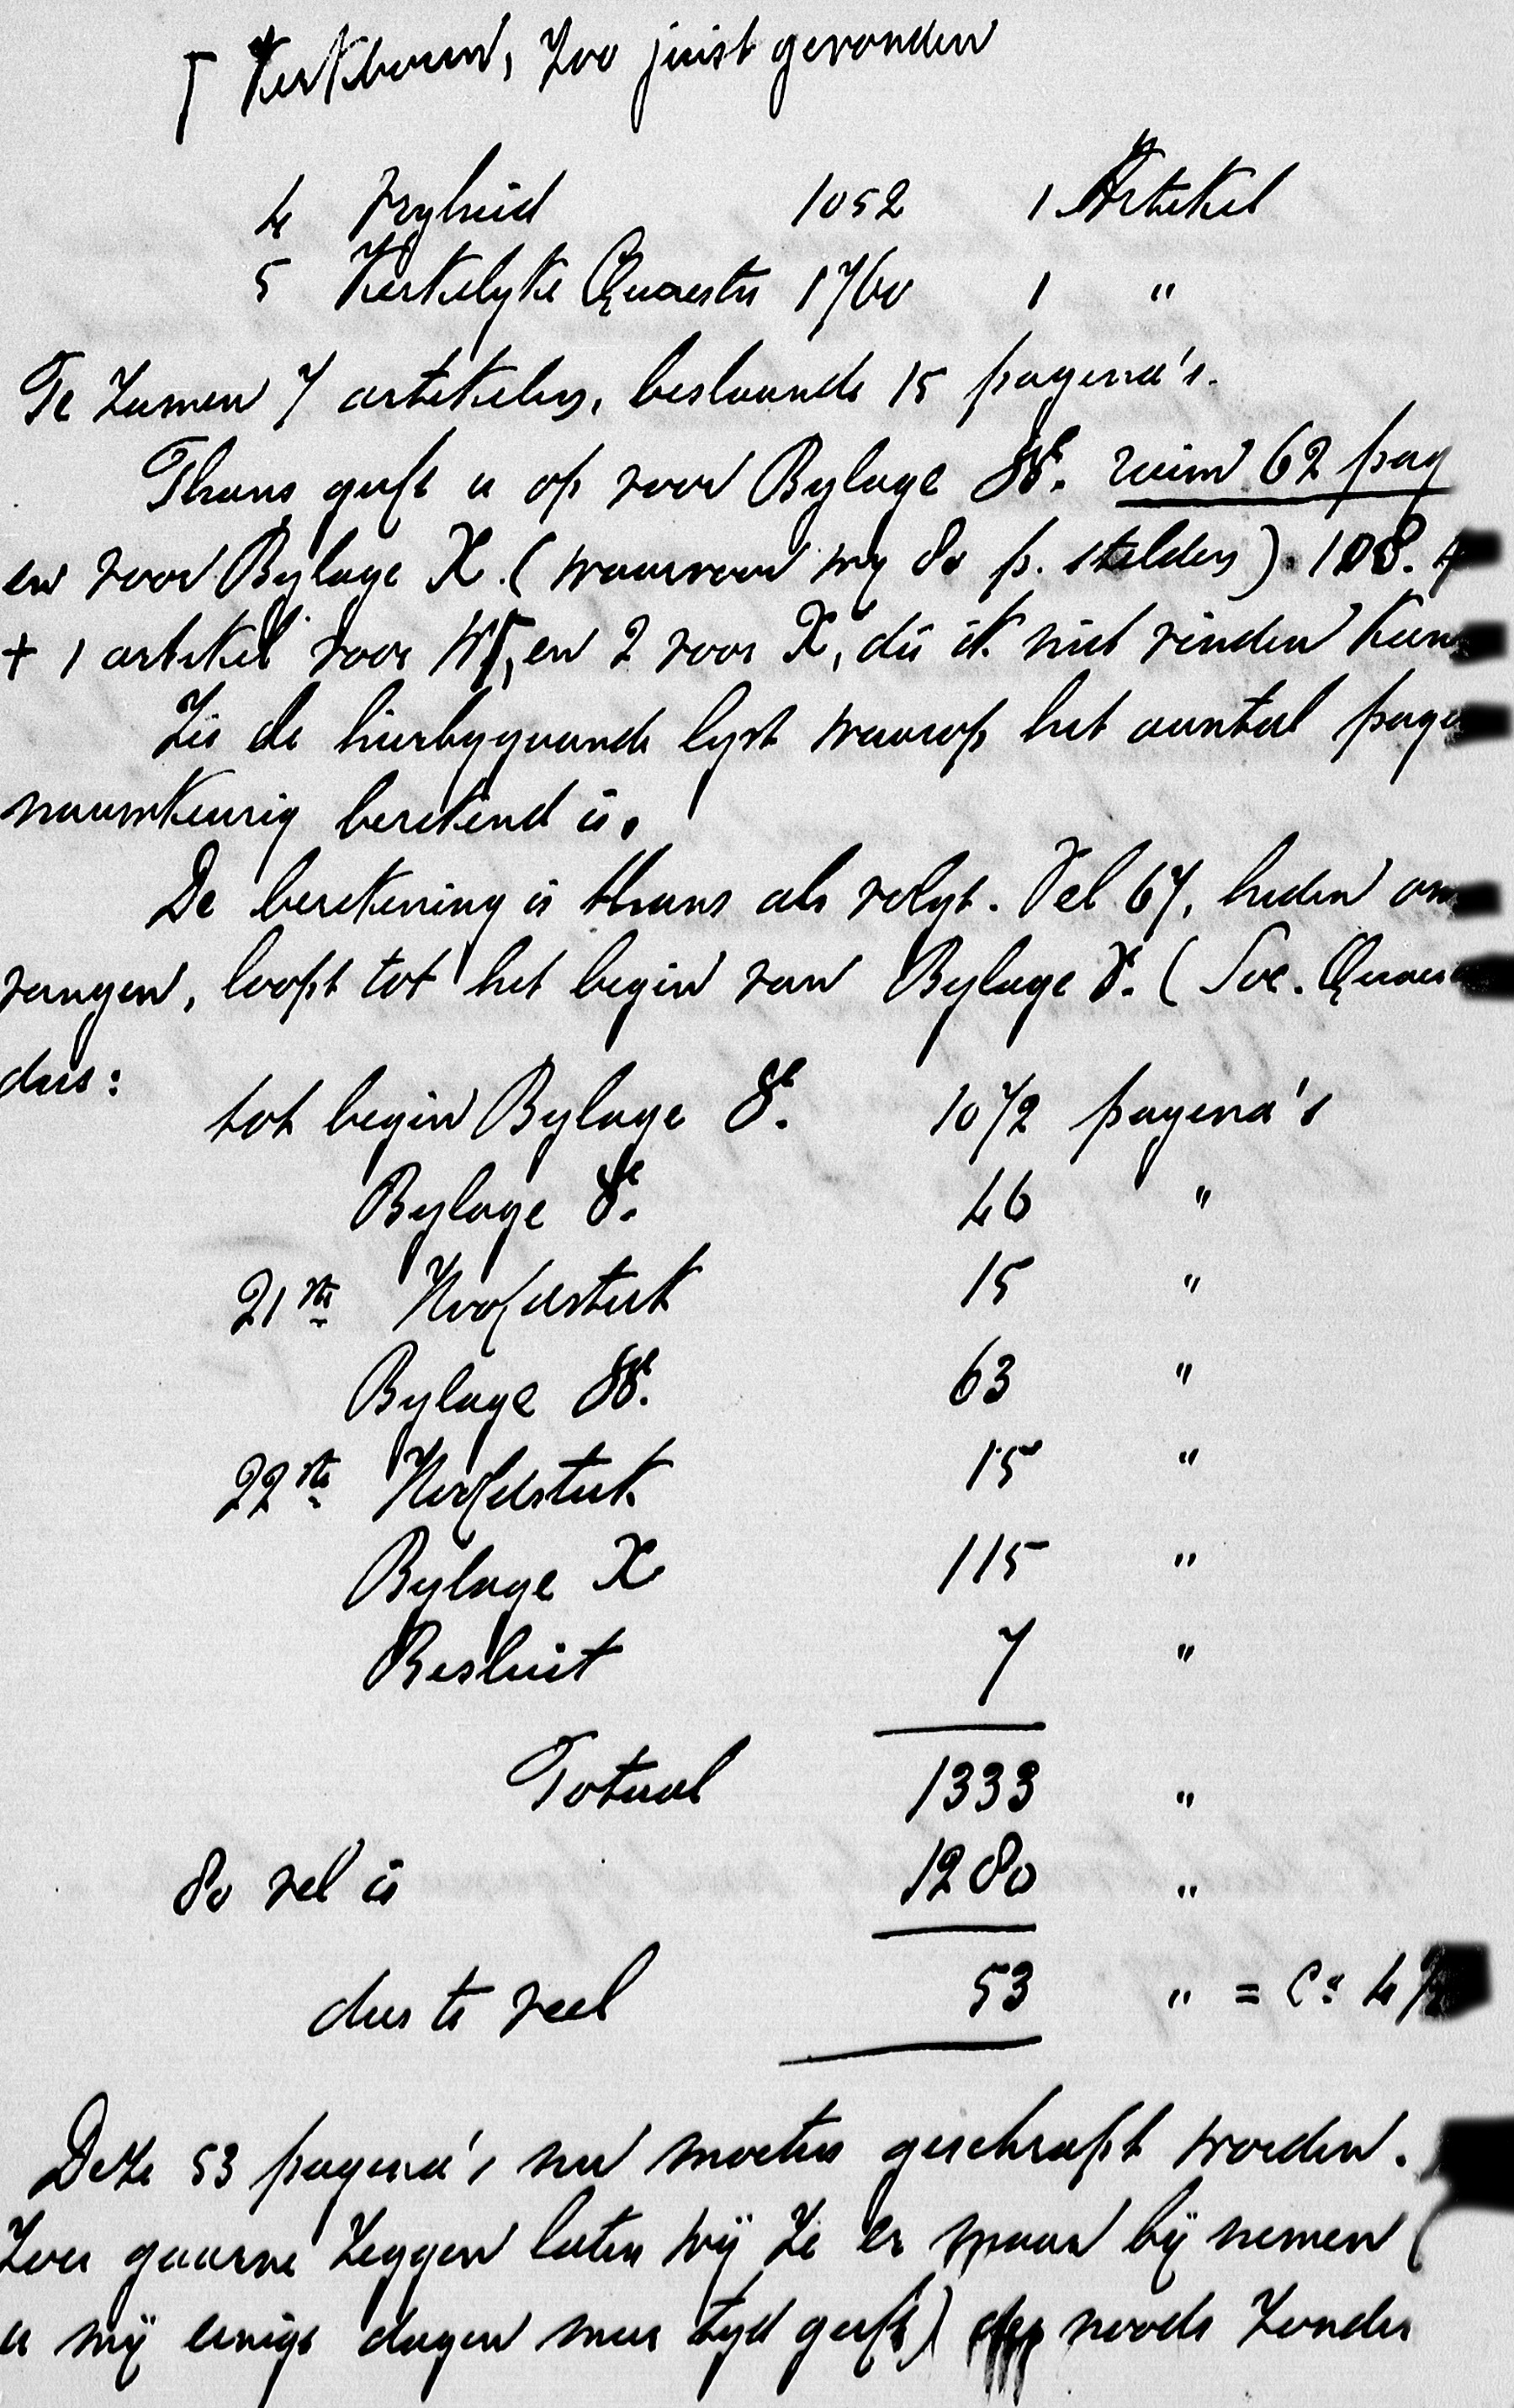 Kerkbouw, zoo juist gevonden
4 Vryheid 1052 1 Artikel
5 Kerkelyke Quaestie 1760 1 "
Te Zamen 7 artikelen, beslaande 15 pagena's.
Thans geeft u op voor Bylage W. ruim 62 pag
en voor Bylage X. (waarvoor wy 80 p. stelden). 108.
+ 1 artikel voor W, en 2 voor X, die ik niet vinden kan
Zie de hierbygaande lyst waarop het aantal page
naauwkeurig berekend is.
De berekening is thans als volgt. Vel 67, heden on
vangen, loopt tot het begin van Bylage V. (Soc. Quaes
dus:
tot begin Bylage V. 1072 pagena's
Bylage V. 46 "
21ste Hoofdstuk 15 "
Bylage W. 63 "
22ste Hoofdstuk 15 "
Bylage X 115 "
Besluit 7 "
Totaal 1333 "
80 vel is 1280 "
dus te veel 53 " = Ca 4
Deze 53 pagena's nu moeten geschrapt worden.
Zou gaarne Zeggen laten wij Ze er maar bij nemen (
u mij eenige dagen meer tyd geeft) noode Zonder